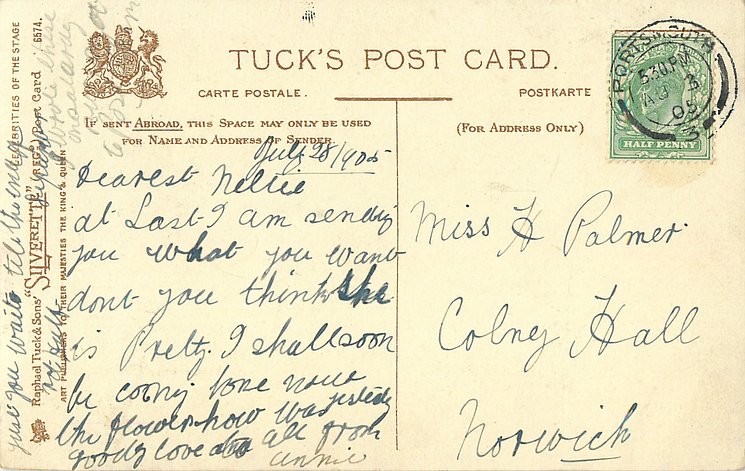 TUCK'S POST CARD.
CARTE POSTALE.
POSTKARTE
IF SENT ABROAD, THIS SPACE MAY ONLY BE USED
FOR NAME AND ADDRESS OF SENDER.
(FOR ADDRESS ONLY)
PORTSMOUTH
5 30 PM
AU 3
05
32
HALF PENNY
July 28/1905
Dearest Nellie
at Last I am sending
you what you want
dont you think she
is Pretty. I shall soon
be coming home now
the flower show was yesterday
goodby love to all from
Annie
Miss H Palmer
Colney Hall
Norwich
CELEBRITIES OF THE STAGE
Raphael Tuck & Sons' "SILVERETTE" (REGD.) Post Card 6574.
ART PUBLISHERS TO THEIR MAJESTIES THE KING & QUEEN
just you wait till the